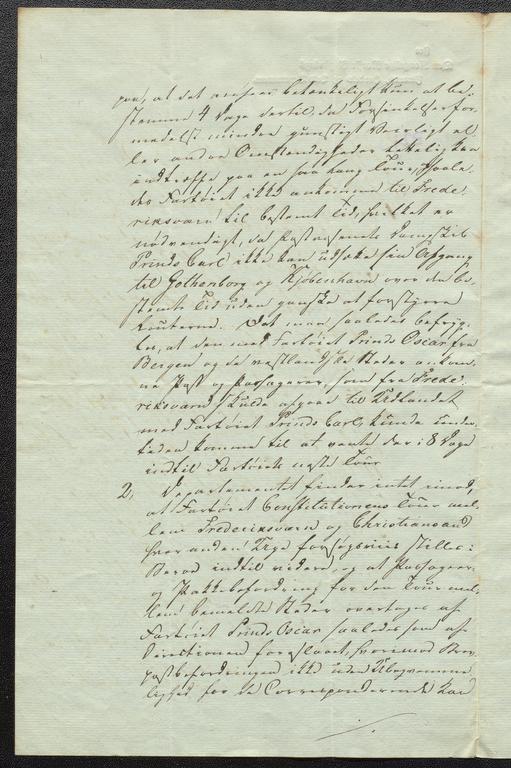 paa, at det ansees betænkeligt kun at be-
stemme 4 Dage dertil, da Forsinkelser for-
medelst mindre gunstigt Veirlagt el-
ler andre Omstændigheder lettelig kan
indtræffe paa en saa lang Tour, saale-
des Fartøiet ikke ankommer til Frede-
riksværn til bestemt Tid, hvilket er
nødvendigt, da Postvæsenets Dampskib
Prinds Carl ikke kan udsætte sin Afgang
til Gothenborg og Kjøbenhavn over den be-
stemte Tid uden ganske at forstyrre
Routerne. Det maa saaledes befryg-
tes, at den med Fartøiet Prinds Oscar fra
Bergen og de vestlandske Steder ankom-
ne Post og Passagerer, som fra Frede-
riksværn skulde afgaae til Udlandet
med Fartøiet Prinds Carl, kunde under-
tiden komme til at vente der i 8 Dage
indtil Fartøiets næste Tour.
2, Departementet finder intet imod,
at Fartøiet Constitutionens Tour mel-
lem Frederiksværn og Christiansand
hver anden Uge forsøgsviis stilles i
Berod indtil videre, og at Passageer-
og Pakkebefordring for den Tour mel-
lem bemeldte Steder overtages af
Fartøiet Prinds Oscar saaledes som af
Directionen foreslaaet, hvorimod Brev-
postbefordringen ikke uden Ubeqvemme-
lighed for de Corresponderende kan